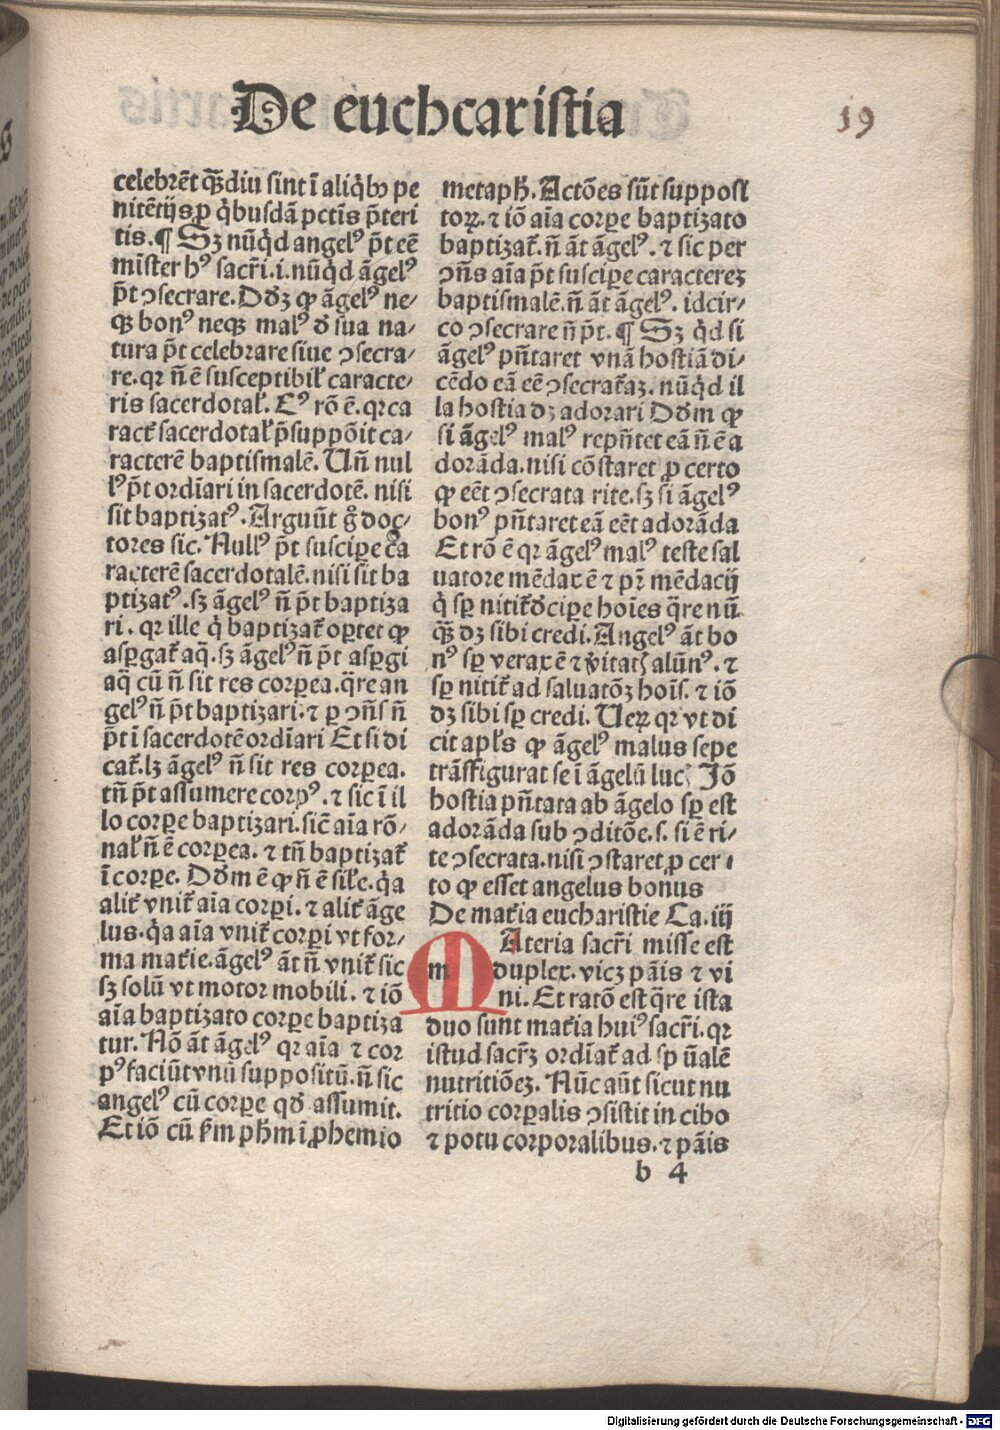 De euchcaristia
19
celebrēt q̄ȝdiu sint ī aliq̇bꝰ pe
nitētijs ꝑ q̇busdā pctīs p̄teri
tis. ¶ Sȝ nūq̇d angelꝰ p̄t eē
mīster hꝰ sacr̄i. i. nūq̇d āgelꝰ
p̄t ↄsecrare. Dd̄ȝ ꝙ āgelꝰ ne⸗
qȝ bonꝰ neqȝ malꝰ đ sua na⸗
tura p̄t celebrare siue ↄsecra⸗
re. qꝛ ñ ē susceptibił caracte⸗
ris sacerdotał. Cꝰ rō ē. qꝛ ca
ract̄ sacerdotał p̄suppōit ca⸗
racterē baptismalē. Uñ nul
lꝰ p̄t ordīari in sacerdotē. nisi
sit baptizatꝰ. Arguūt g̊ doc⸗
tores sic. Nullꝰ p̄t suscipe ca
racterē sacerdotalē. nisi sit ba
ptizatꝰ. sȝ āgelꝰ ñ p̄t baptiza
ri. qꝛ ille q̇ baptizat̄ oꝑtet ꝙ
asꝑgat̄ aq̄. sȝ āgelꝰ ñ p̄t asꝑgi
aq̄ cū ñ sit res corꝑea. q̄re an
gelꝰ ñ p̄t baptizari. ⁊ ꝑ ↄñs ñ
p̄t ī sacerdotē ordīari Et si di
cat̄. lȝ āgelꝰ ñ sit res corꝑea.
tñ p̄t assumere corpꝰ. ⁊ sic ī il
lo corꝑe baptizari. sic̄ aīa rō⸗
nał ñ ē corꝑea. ⁊ tñ baptizat̄
ī corꝑe. Dd̄m ē ꝙ ñ ē sił̄e. q̇a
alit̄ vnit̄ aīa corꝑi. ⁊ alit̄ āge
lus. q̇a aīa vnit̄ corꝑi vt for⸗
ma mat̄ie. āgelꝰ āt ñ vnit̄ sic
sȝ solū vt motor mobili. ⁊ iō
aīa baptizato corꝑe baptiza
tur. Nō āt āgelꝰ qꝛ aīa ⁊ cor
pꝰ faciūt vnū suppositū. ñ sic
angelꝰ cū corꝑe qd̄ assumit.
Et iō cū k̄m ph̄m ī ꝓhemio
metapħ. Actōes sūt supposi
toꝝ. ⁊ iō aīa corꝑe baptizato
baptizat̄. ñ āt āgelꝰ. ⁊ sic per
ↄñs aīa p̄t suscipe caracterez
baptismalē. ñ āt āgelꝰ. idcir⸗
co ↄsecrare ñ p̄t. ¶ Sȝ q̇d si
āgelꝰ pñtaret vnā hostiā di⸗
cēdo eā eē ↄsecrat̄aȝ. nūq̇d il
la hostia dȝ adorari Dd̄m ꝙ
si āgelꝰ malꝰ repñtet eā ñ ē a
dorāda. nisi cōstaret ꝓ certo
ꝙ eēt ↄsecrata rite. sȝ si āgelꝰ
bonꝰ pñtaret eā eēt adorāda
Et rō ē qꝛ āgelꝰ malꝰ teste sal
uatore mēdax ē ⁊ pr̄ mēdacij
q̇ sꝑ nitit̄ đcipe hoīes q̄re nū
q̄ȝ dȝ sibi credi. Angelꝰ āt bo
nꝰ sꝑ verax ē ⁊ v̄itatꝭ alūnꝰ. ⁊
sꝑ nitit̄ ad saluatōȝ hoīs. ⁊ iō
dȝ sibi sꝑ credi. Ueꝝ qꝛ vt di
cit apl̄s ꝙ āgelꝰ malus sepe
trāsfigurat se ī āgelū lucꝭ Iō
hostia pñtata ab āgelo sꝑ est
adorāda sub ↄditōe. s. si ē ri⸗
te ↄsecrata. nisi ↄstaret ꝓ cer⸗
to ꝙ esset angelus bonus
De mat̄ia eucharistie Ca. iij
m Ateria sacr̄i misse est
duplex. vicȝ pāis ⁊ vi
ni. Et ratō est q̄re ista
duo sunt mat̄ia huiꝰ sacr̄i. qꝛ
istud sacr̄ȝ ordīat̄ ad sp ūalē
nutritiōeȝ. Nūc aūt sicut nu
tritio corꝑalis ↄsistit in cibo
⁊ potu corporalibus. ⁊ pāis
b 4
Digitalisierung gefördert durch die Deutsche Forschungsgemeinschaft - DFG